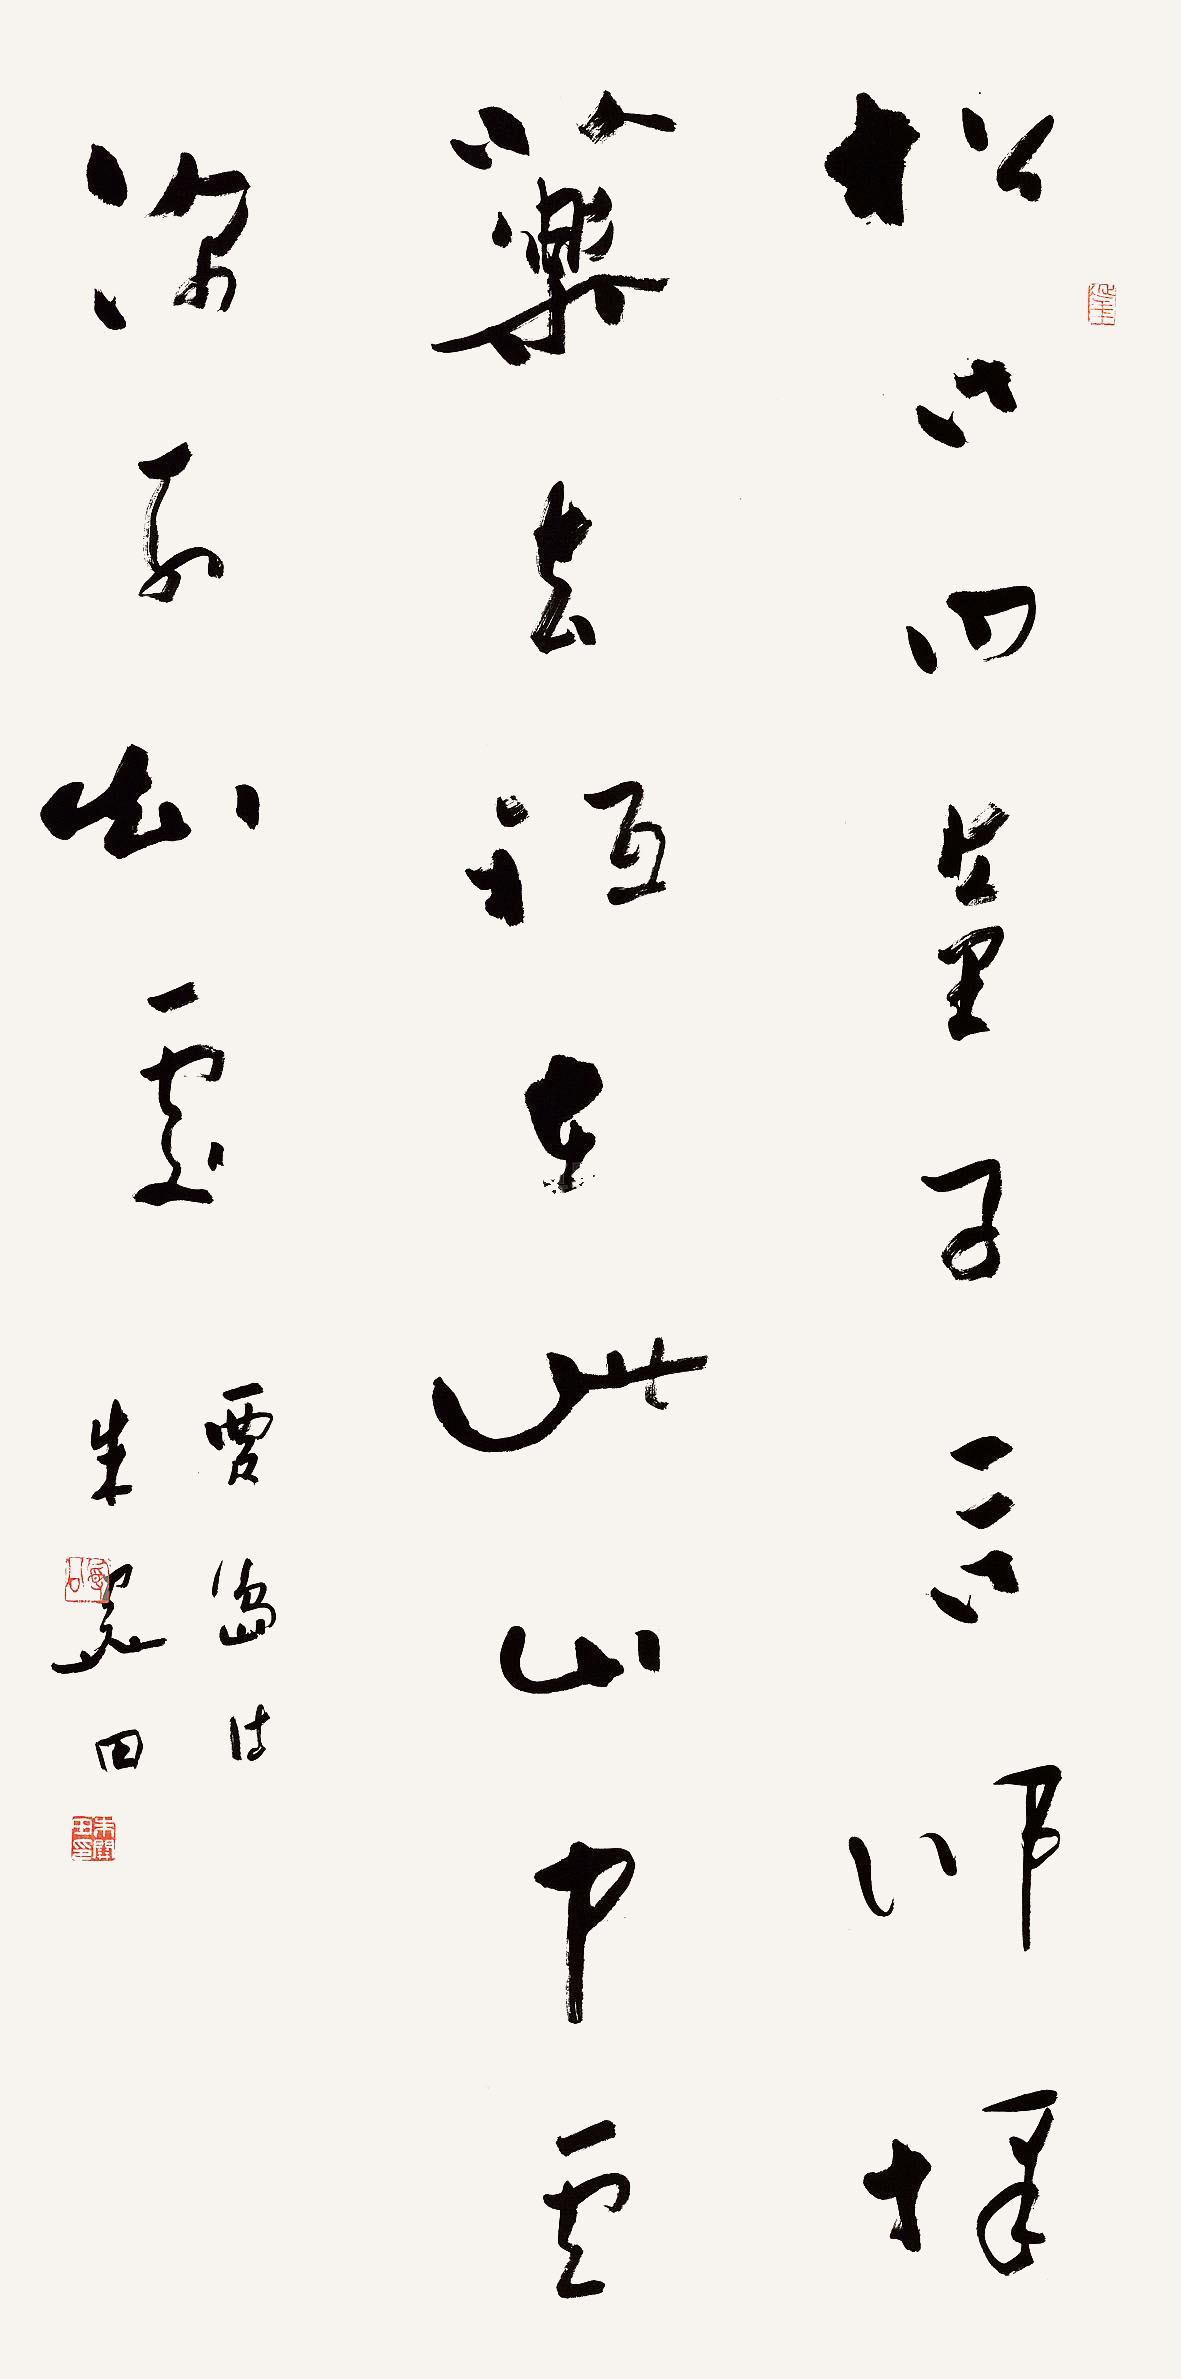 松下問童子言師採
藥去祗在此山中雲
深不知處
賈島詩
朱關田
朱關田印